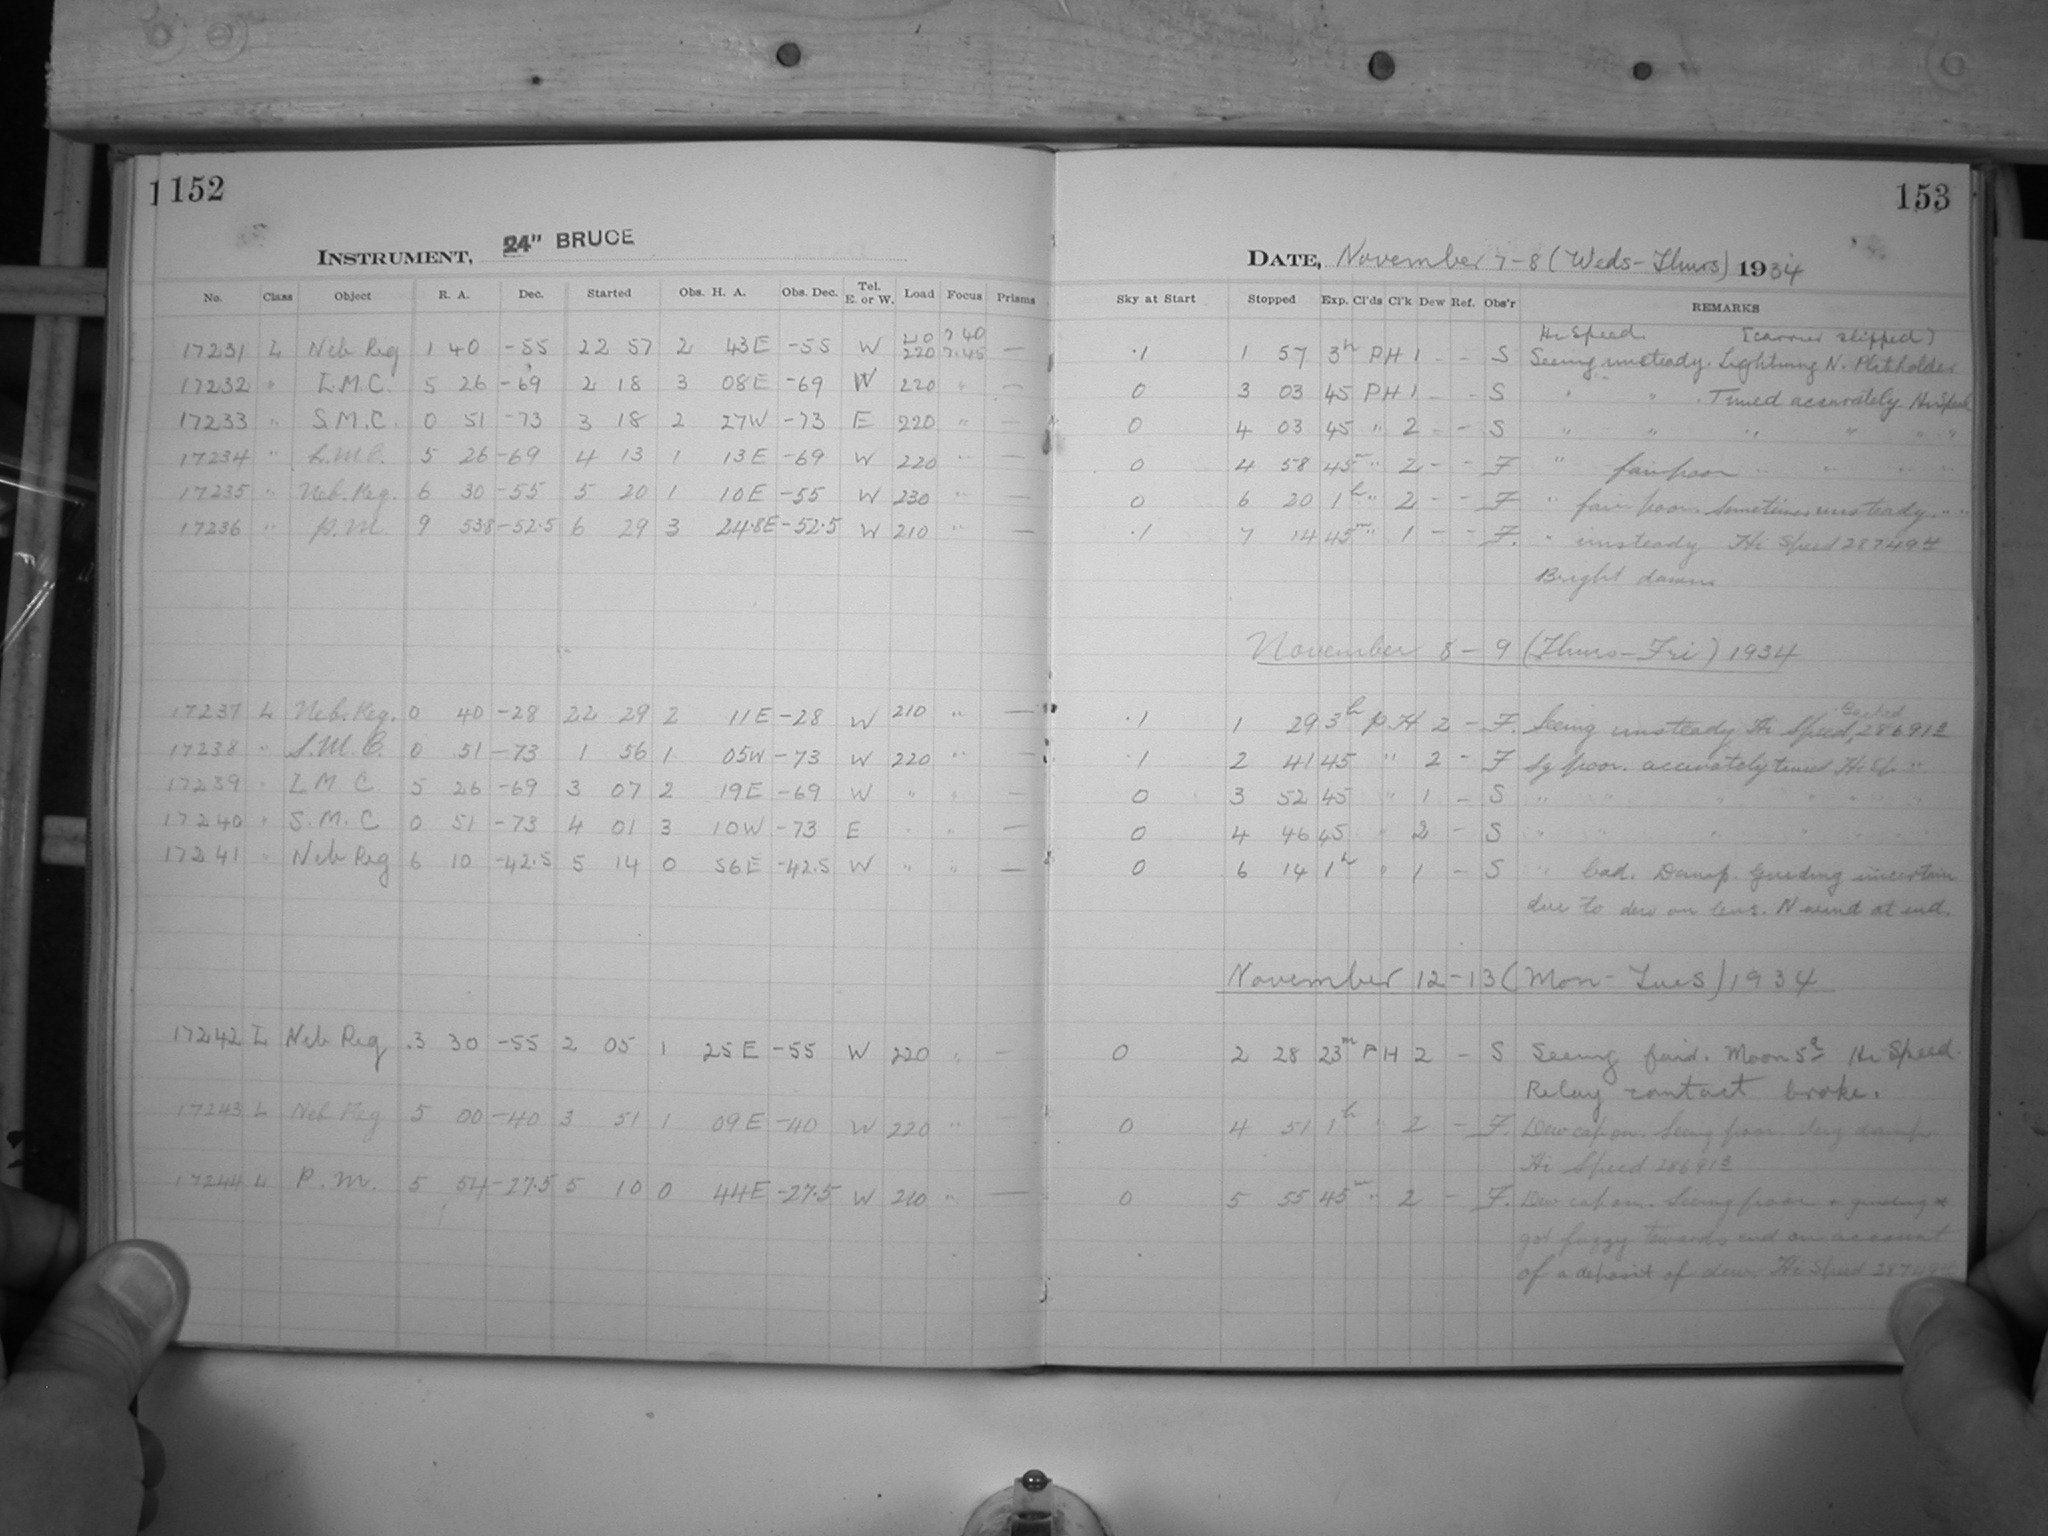 152
INSTRUMENT, 24" BRUCE
No. Class Object R. A. Dec. Started Obs. H. A. Obs. Dec. Tel. E. or W. Load Focus Prisms
17231 L Neb Reg 1 40 -55 22 57 2 43E -55 W 220 7.45 —
17232 " L.M.C. 5 26 -69 2 18 3 08E -69 W 220 " —
17233 " S.M.C. 0 51 -73 3 18 2 27W -73 E 220 " —
17234 " L.M.C. 5 26 -69 4 13 1 13E -69 W 220 " —
17235 " Neb. Reg. 6 30 -55 5 20 1 10E -55 W 230 " —
17236 " P.M. 9 53.8 -52.5 6 29 3 24.8E -52.5 W 210 " —
17237 L Neb. Reg. 0 40 -28 22 29 2 11E -28 W 210 " —
17238 " S.M.C. 0 51 -73 1 56 1 05W -73 W 220 " —
17239 " L M C. 5 26 -69 3 07 2 19E -69 W " " —
17240 " S.M.C 0 51 -73 4 01 3 10W -73 E " " —
17241 " Neb Reg 6 10 -42.5 5 14 0 56E -42.5 W " " —
17242 L Neb Reg 3 30 -55 2 05 1 25E -55 W 220 " —
17243 L Neb Reg 5 00 -40 3 51 1 09E -40 W 220 "
17244 L P.M. 5 54 -27.5 5 10 0 44E -27.5 W 210 " —
153
DATE, November 7-8 (Weds-Thurs) 1934
Sky at Start Stopped Exp. Cl'ds Cl'k Dew Ref. Obs'r REMARKS
Hi Speed. [carrier slipped]
.1 1 57 3h P H 1 - - S Seeing unsteady. Lightning N. Plateholder
0 3 03 45 P H 1 - - S " " Timed accurately. Hi Speed
0 4 03 45 " 2 - - S " " " " " "
0 4 58 45m " 2 - - F " fair poor " " " "
0 6 20 1h " 2 - - F " fair poor sometimes unsteady. " "
.1 7 14 45m " 1 - - F. " unsteady Hi Speed 28749
Bright dawn
November 8-9 (Thurs-Fri) 1934
.1 1 29 3h P. H 2 - F. Seeing unsteady Hi Speed Backed 28691
.1 2 41 45 " 2 - F Sg poor. accurately timed Hi Sp "
0 3 52 45 " 1 - S " " " " " "
0 4 46 45 " 2 - S " " " " " "
0 6 14 1h " 1 - S " bad. Damp. Guiding uncertain
due to dew on lens. N wind at end.
November 12-13 (Mon-Tues) 1934
0 2 28 23m P H 2 - S Seeing fair. Moon 5d Hi Speed.
Relay contact broke.
0 4 51 1h " 2 - F. Dew cap on. Seeing poor. Very damp
Hi Speed 28691
0 5 55 45m " 2 - F. Dew cap on. Seeing poor & guiding *
got fuzzy towards end on account
of a deposit of dew. Hi Speed 28749